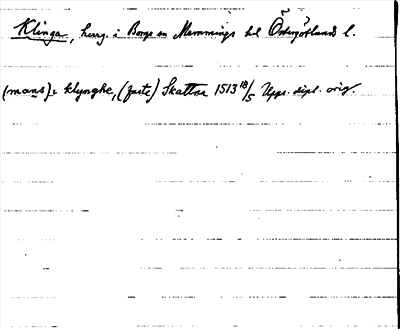 Klinga, herrg. i Borgs sn Memmings hd Östergötlands l.
(mans) i klynghe, (gaste) Skattsa 1513 18/5 Upps. dipl. orig.